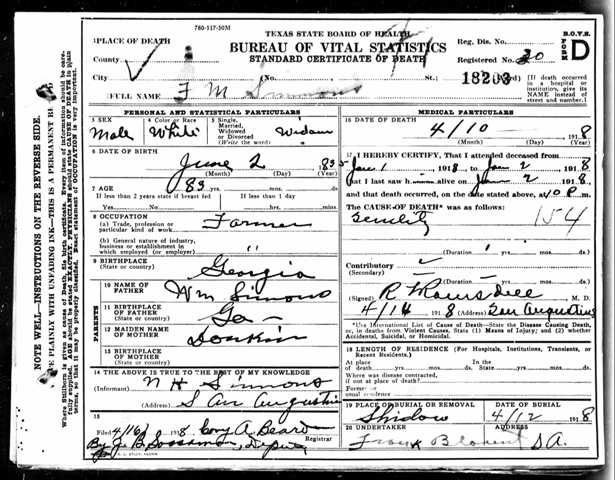 780-117-50M
TEXAS STATE BOARD OF HEALTH
BUREAU OF VITAL STATISTICS
STANDARD CERTIFICATE OF DEATH
B.O.V.S.
FORM D
Reg. Dis. No.
Registered No. 20
18203
PLACE OF DEATH
County
City
(No. St.
[If death occurred in a hospital or institution, give its NAME instead of street and number.]
FULL NAME F M Simmons
PERSONAL AND STATISTICAL PARTICULARS
5 SEX Male
4 Color or Race White
5 Single, Married, Widowed or Divorced (Write the word)
6 DATE OF BIRTH
June 2 1835
(Month) (Day) (Year)
7 AGE 83
If less than 2 years state if breast fed
If less than 1 day
8 OCCUPATION
(a) Trade, profession or particular kind of work Farmer
(b) General nature of industry, business or establishment in which employed (or employer) "
9 BIRTHPLACE (State or country) Georgia
PARENTS
10 NAME OF FATHER Wm Simmons
11 BIRTHPLACE OF FATHER (State or country) Ga
12 MAIDEN NAME OF MOTHER
13 BIRTHPLACE OF MOTHER (State or country)
14 THE ABOVE IS TRUE TO THE BEST OF MY KNOWLEDGE
(Informant) N H Simmons
(Address) San Augustine
15
Filed 4/16 1918. Cory A. Beard
Registrar
By J. B. Deputy
MEDICAL PARTICULARS
16 DATE OF DEATH
4/10 1918
(Month) (Day) (Year)
17 I HEREBY CERTIFY, That I attended deceased from
Jan 1 1918, to Jan 2 1918
that I last saw h alive on Jan 2 1918
and that death occurred, on the date stated above, at 10 P m.
The CAUSE OF DEATH* was as follows:
Senility 154
(Duration)
Contributory
(Secondary)
(Duration)
(Signed) R T Ramsdell M. D.
4/14 1918 (Address) San Augustine
*Use International List of Cause of Death—State the Disease Causing Death, or, in deaths from Violent Causes, State (1) Means of Injury; and (2) whether Accidental, Suicidal, or Homicidal.
18 LENGTH OF RESIDENCE (For Hospitals, Institutions, Transients, or Recent Residents.)
At place of death yrs. mos. ds.
In the State yrs. mos. ds.
Where was disease contracted, if not at place of death?
Former or usual residence
19 PLACE OF BURIAL OR REMOVAL
DATE OF BURIAL
4/12 1918
20 UNDERTAKER
ADDRESS
Frank S A.
NOTE WELL—INSTRUCTIONS ON THE REVERSE SIDE.
PLAINLY WITH UNFADING INK—THIS IS A PERMANENT